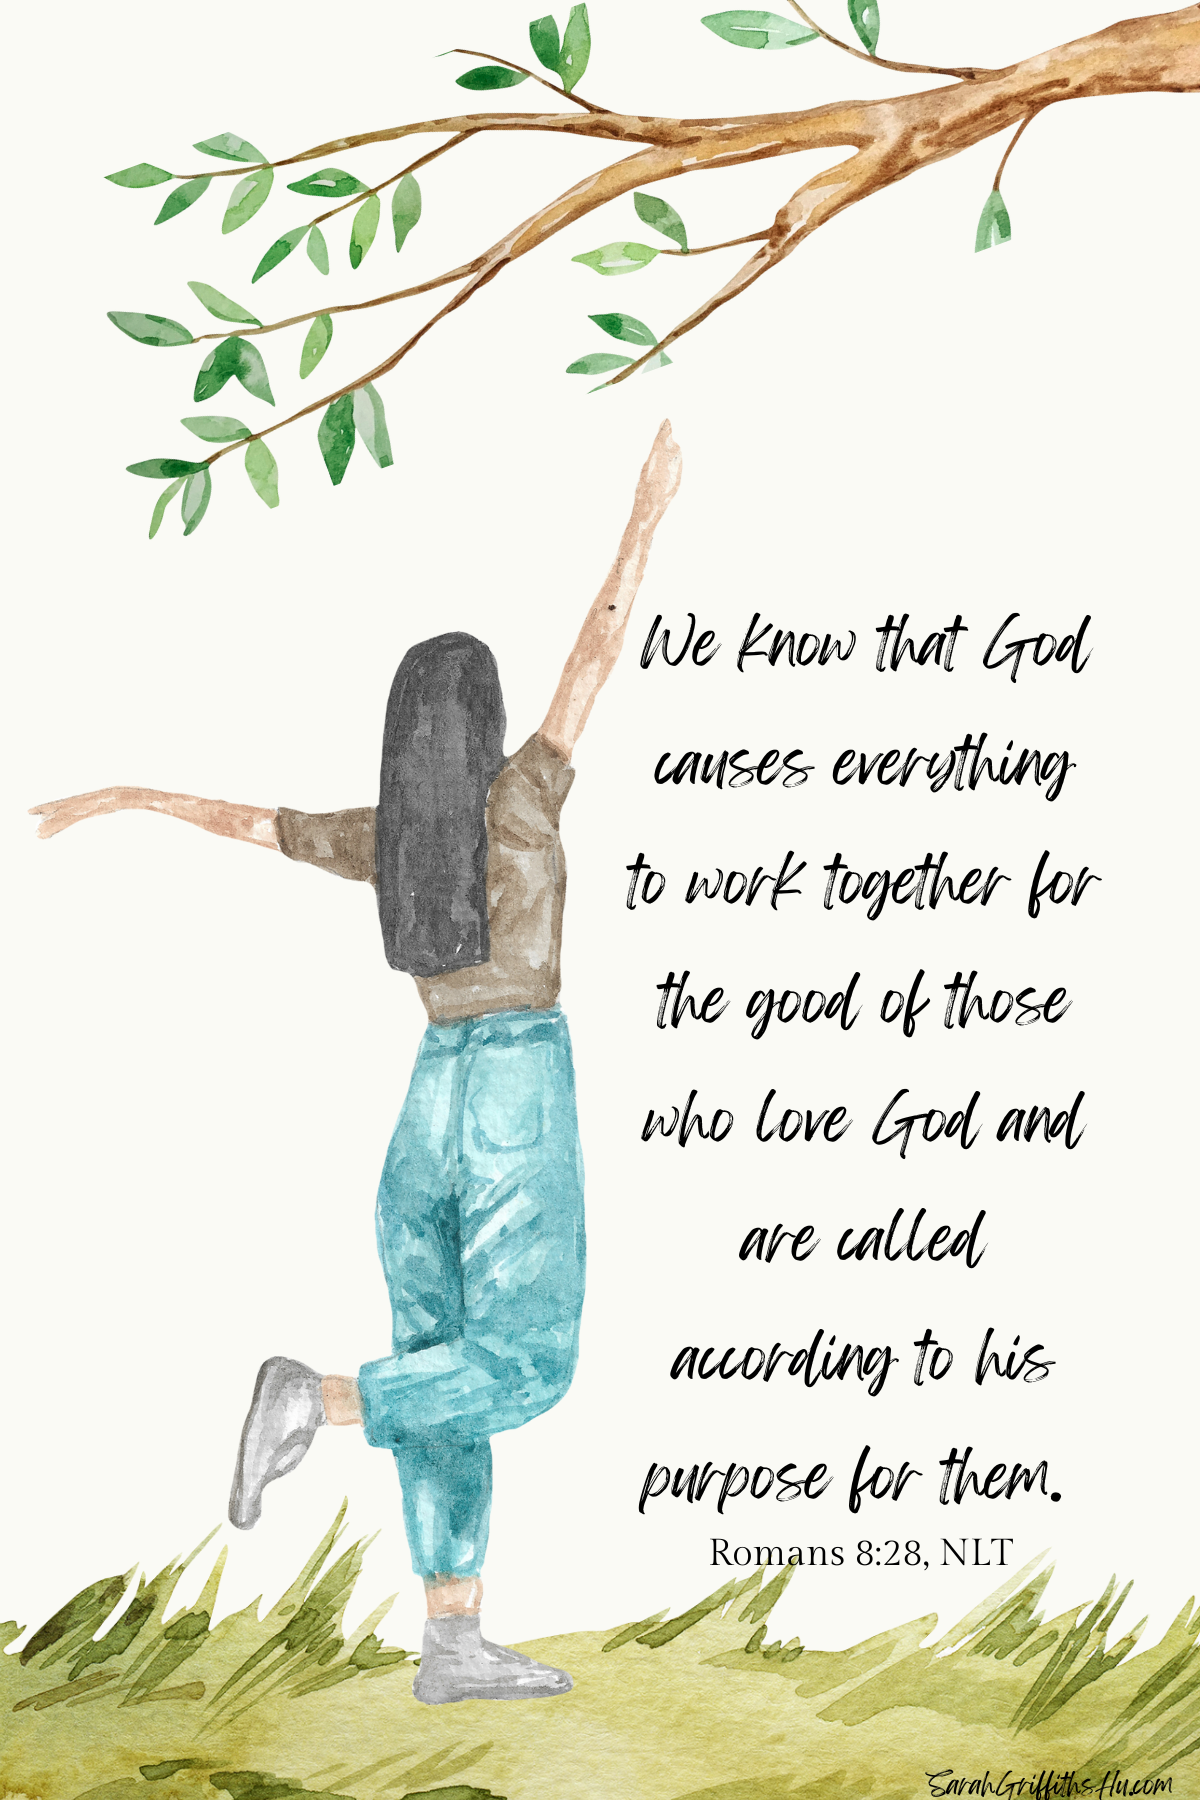 We know that God
causes everything
to work together for
the good of those
who love God and
are called
according to his
purpose for them.
Romans 8:28, NLT
SarahGriffithsHu.com